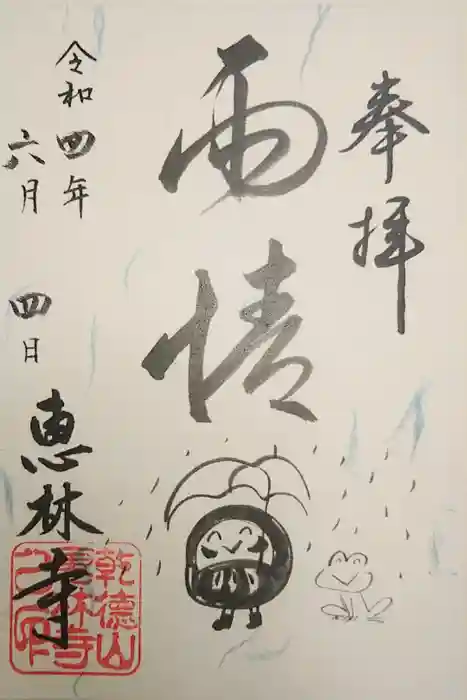 奉拝
雨情
令和四年
六月四日
恵林寺
乾徳山
恵林寺